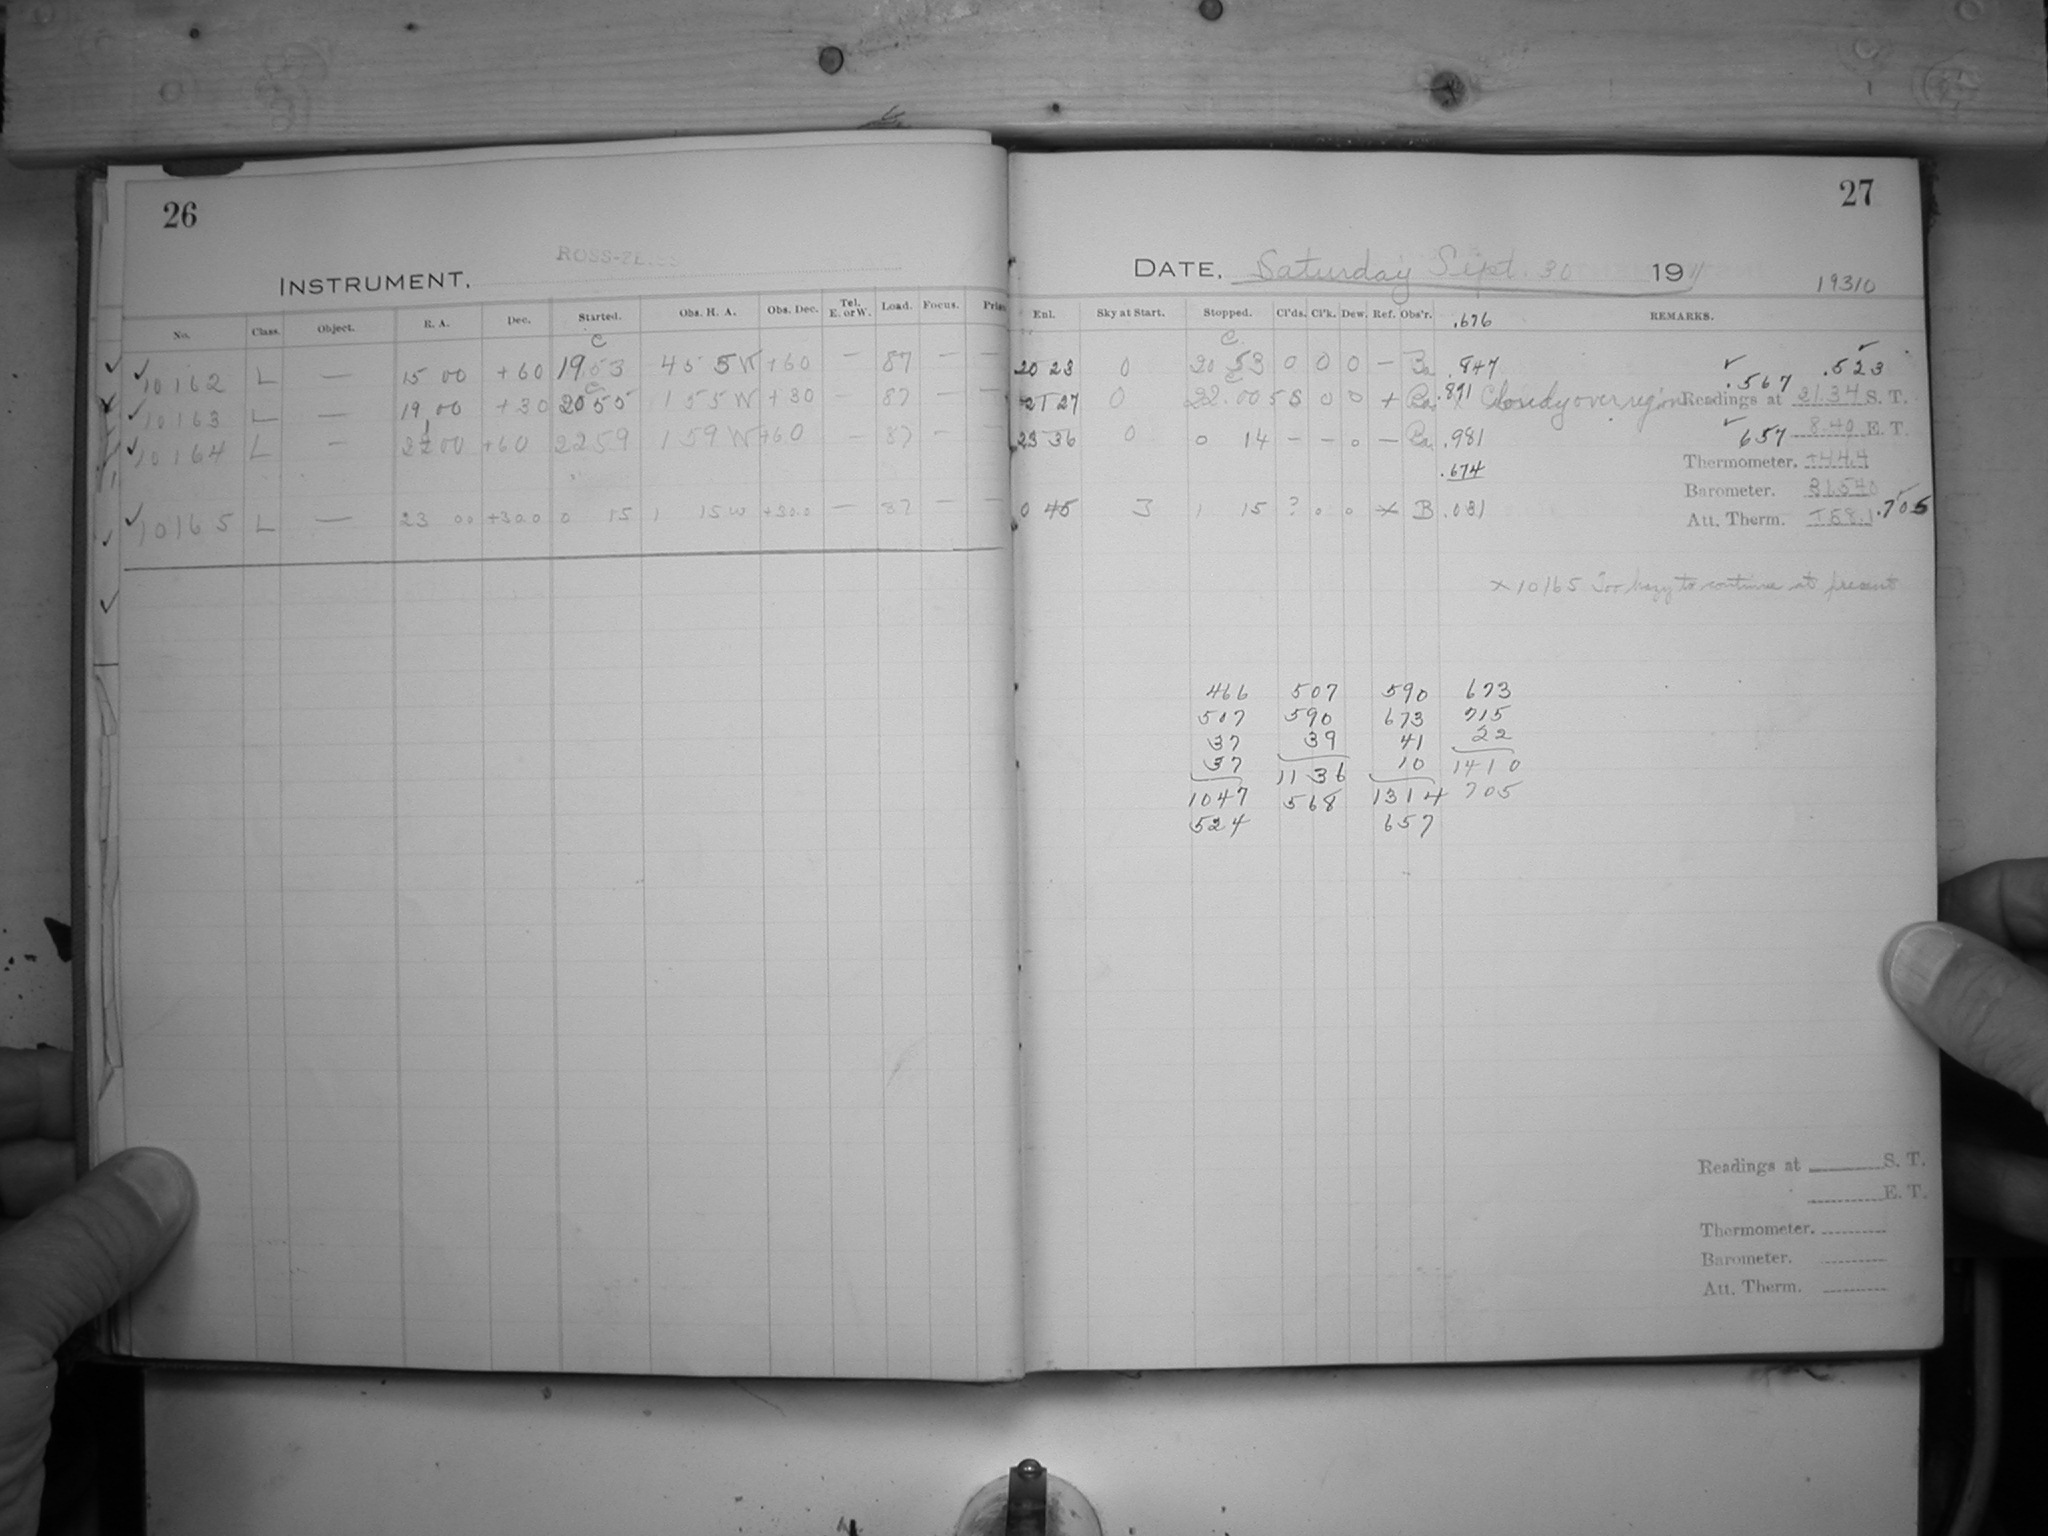 26
ROSS-ZEISS
INSTRUMENT.
No. Class. Object. R. A. Dec. Started. Obs. H. A. Obs. Dec. Tel. E. or W. Load. Focus.
C
10162 L — 15 00 +60 19.53 4 55 W +60 — 87 — —
C
10163 L — 19 00 +30 20 55 1 55 W +30 — 87 — —
10164 L — 22 00 +60 22 59 1 59 W +60 — 87 — —
10165 L — 23 00 +30.0 0 15 1 15 W +30.0 — 87 — —
27
DATE, Saturday Sept. 30 1911
19310
Enl. Sky at Start. Stopped. Cl'ds. Cl'k. Dew. Ref. Obs'r. .676 REMARKS.
C
20 23 0 20 53 0 0 0 — Ba .847 .567 .523
C
21 27 0 22.00 5 8 0 0 + Ba .891 Cloudy over region Readings at 21.34 S. T.
23 36 0 0 14 — — 0 — Ba .981 657 8.40 E. T.
.674
Thermometer. +44.4
Barometer. 31.540
0 45 3 1 15 ? 0 0 × B .031 Att. Therm. +58.1 .705
× 10165 Too hazy to continue at present
466 507 590 673
507 590 673 715
37 39 41 22
37 1136 10 1410
1047 568 1314 705
524 657
Readings at S. T.
E. T.
Thermometer.
Barometer.
Att. Therm.